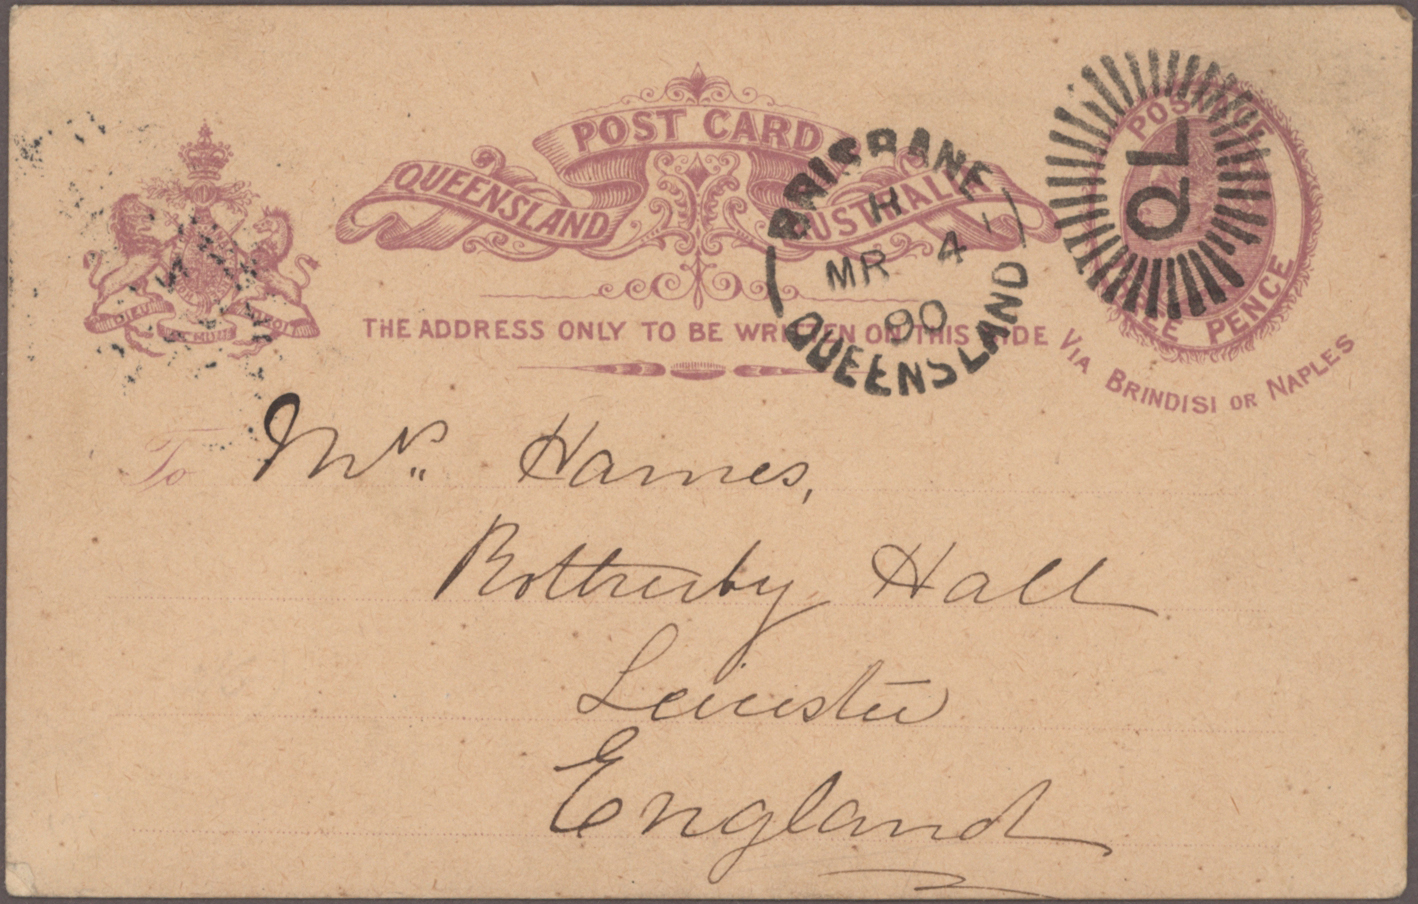 POST CARD
QUEENSLAND AUSTRALIA
THE ADDRESS ONLY TO BE WRITTEN ON THIS SIDE
POSTAGE
PENCE
VIA BRINDISI OR NAPLES
BRISBANE
H
MR 4
90
QUEENSLAND
QL
DIEU
To Mrs. Hames,
Rotherby Hall
Leicester
England